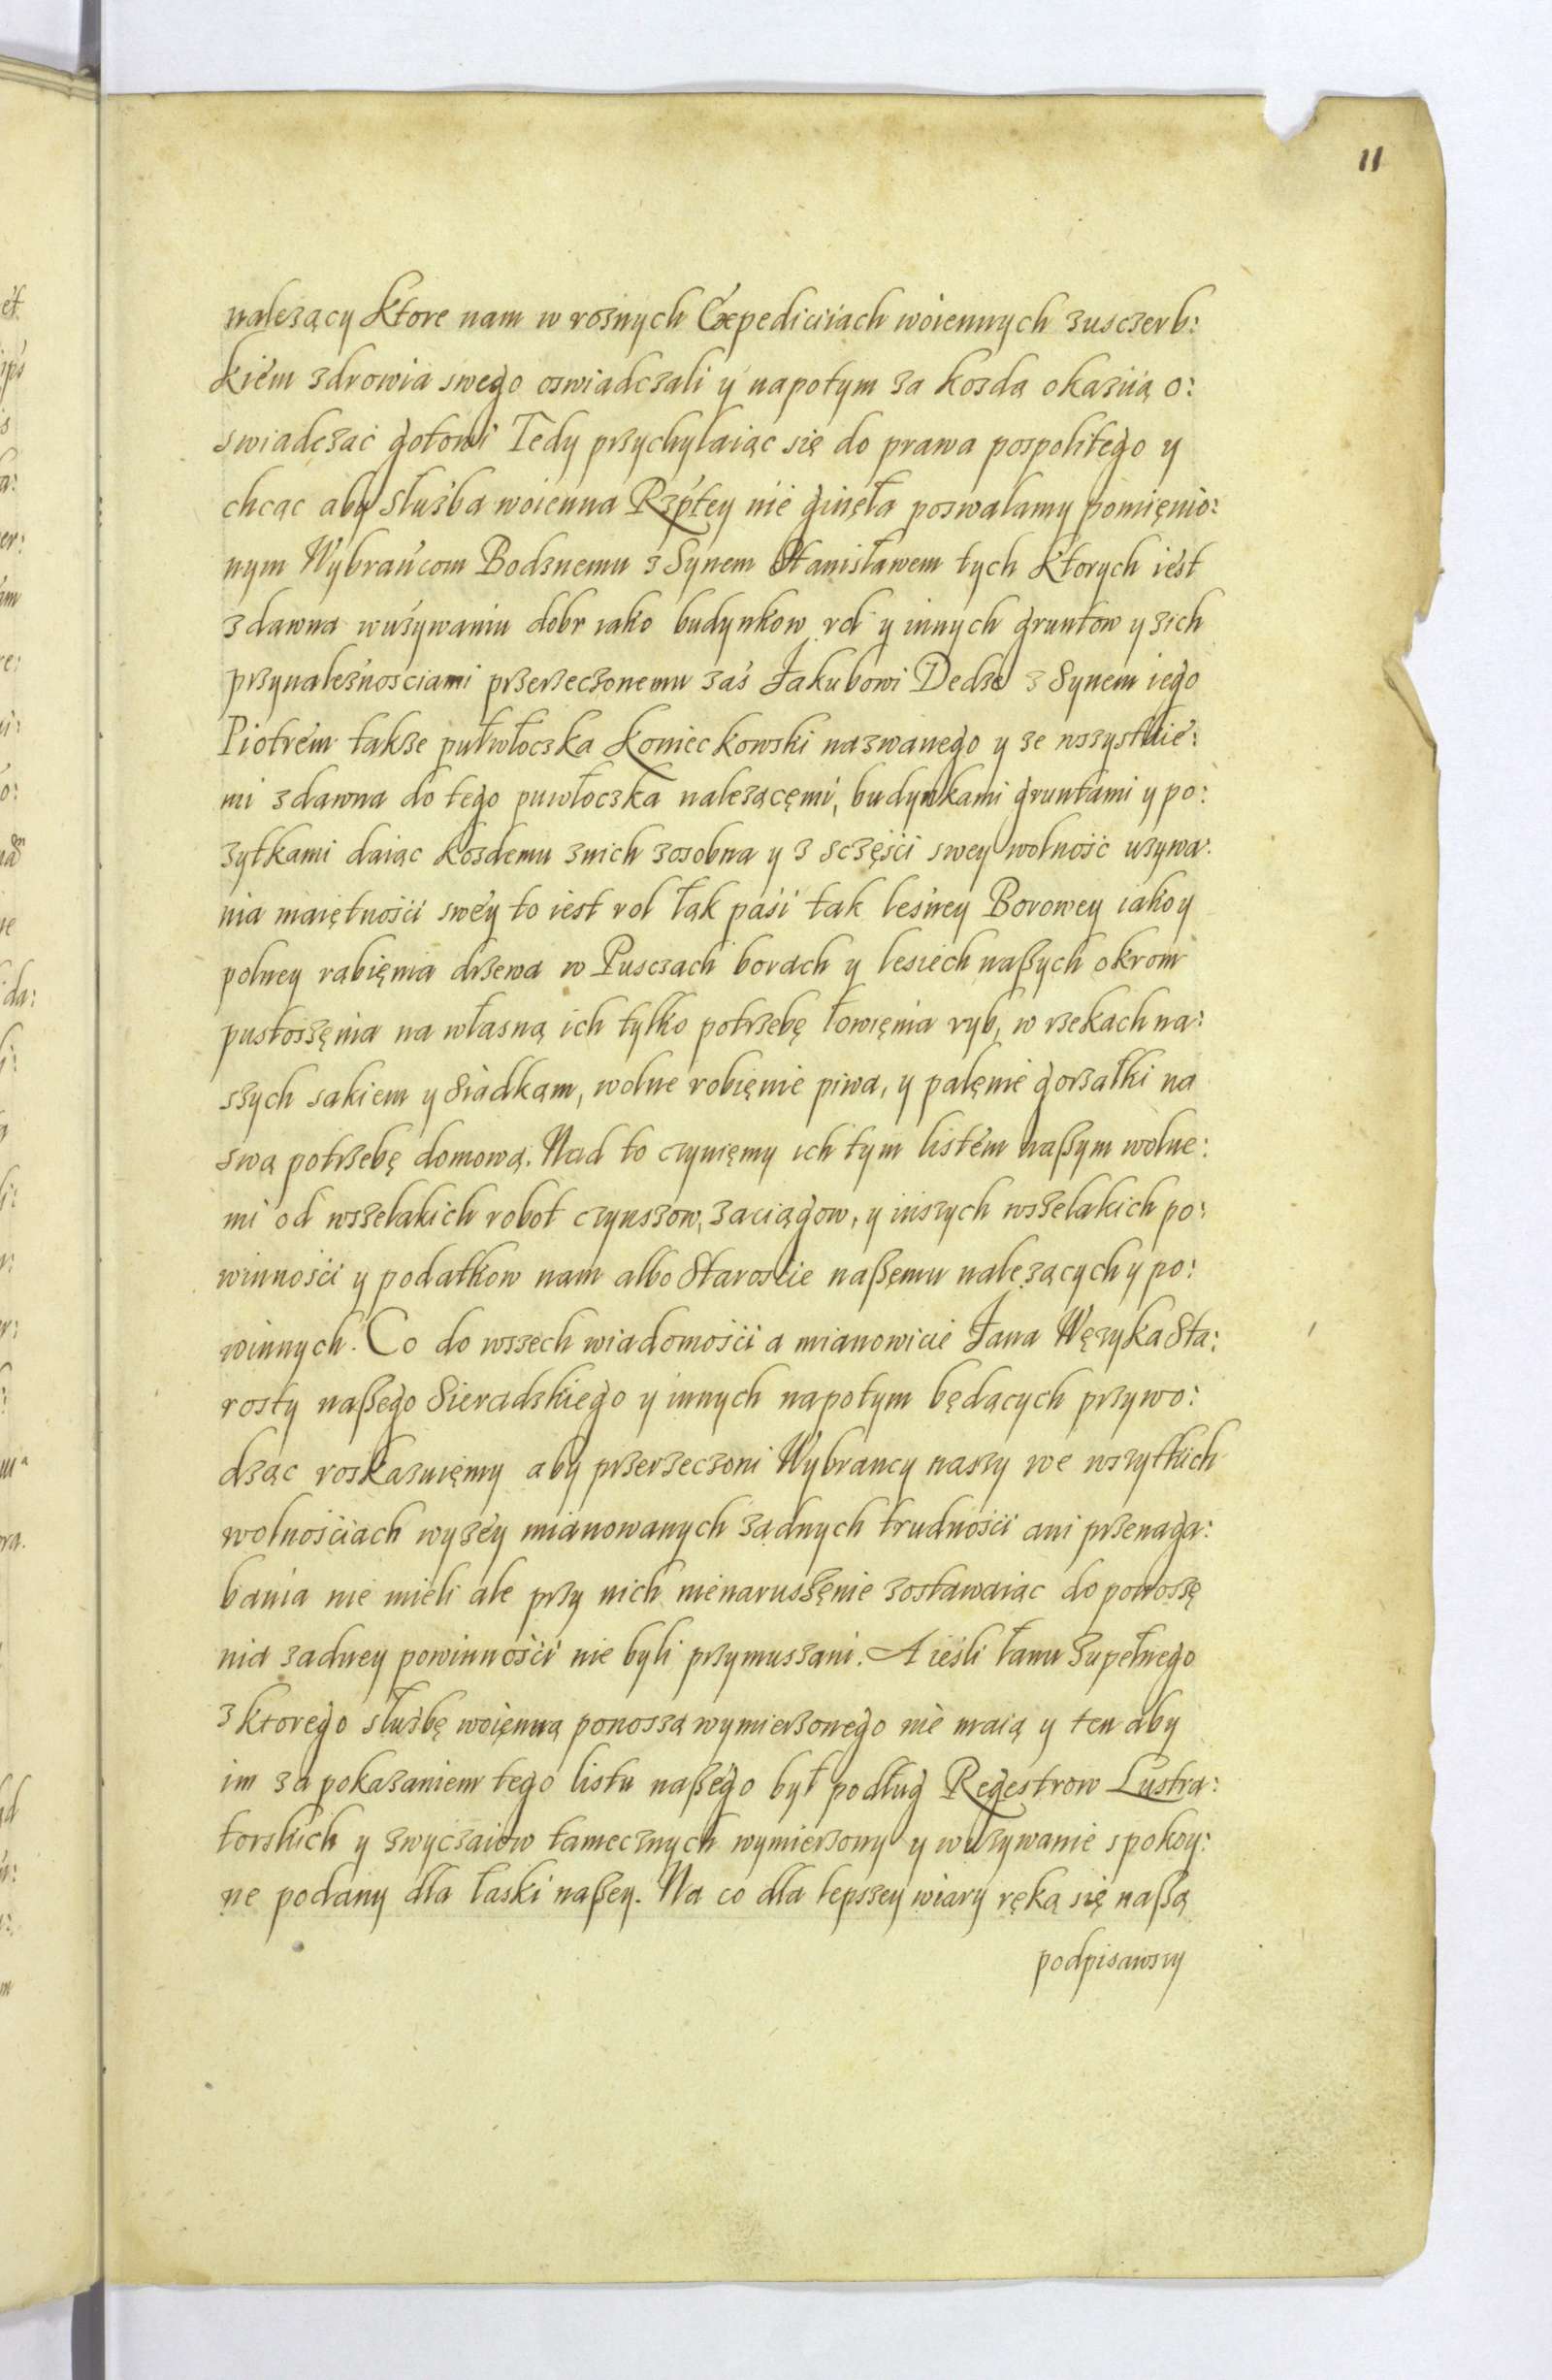 11
nalezący ktore nam w roznych Expediciiach woiennych zusczerb:
kiem zdrowia swego oswiadczali y napotym za kozdą okaziią o:
swiadczać gotowi Tedy przychylaiąc się do prawa pospolitego y
chcąc aby służba woienna Rzptey nie ginęła pozwalamy pomięnio:
nym Wybrańcom Bodznemu z Synem Stanisławem tych ktorych iest
zdawna wużywaniu dobr iako budynkow rol y innych gruntow y zich
przynależnosciami przerzeczonemu zaś Jakubowi Dedze z Synem iego
Piotrem także pułwłoczka Konieckowski nazwanego y ze wszystkie:
mi zdawna do tego puwłoczka należącęmi, budynkami gruntami y po:
zytkami daiąc kozdemu znich zosobna y z sczęści swey wolność uzywa:
nia maiętności swey to iest rol łąk paśi tak leśney Borowey iako y
polney rabięnia drzewa w Pusczach borach y lesiech naßych okrom
pustoszęnia na własną ich tylko potrzebę łowięnia ryb, w rzekach na:
szych sakiem y siadkąm, wolne robięnie piwa, y palęnie gorzałki na
swą potrzebę domową. Nad to czynięmy ich tym listem naßym wolne:
mi od wszelakich robot czynszow, zaciągow, y inszych wszelakich po:
winności y podatkow nam albo Staroście naßemu należących y po:
winnych. Co do wszech wiadomości a mianowicie Jana Wężyka Sta:
rosty naßego Sieradzkiego y innych napotym będących przywo:
dząc roskazuięmy aby przerzeczoni Wybrancy naszy we wszytkich
wolnościach wyzey mianowanych żądnych trudności ani przenaga:
bania nie mieli ale przy nich nienaruszęnie zostawaiąc do ponoszę
nia zadney powinności nie byli przymuszani. A ieśli łanu zupełnego
z ktorego służbę woięnną ponoszą wymierzonego nie maią y ten aby
im za pokazaniem tego listu naßego był podług Regestrow Lustra:
torskich y zwyczaiow tamecznych wymierzony y wużywanie spokoy:
ne podany dla łaski naßey. Na co dla lepszey wiary ręką się naßą
podpisawszy